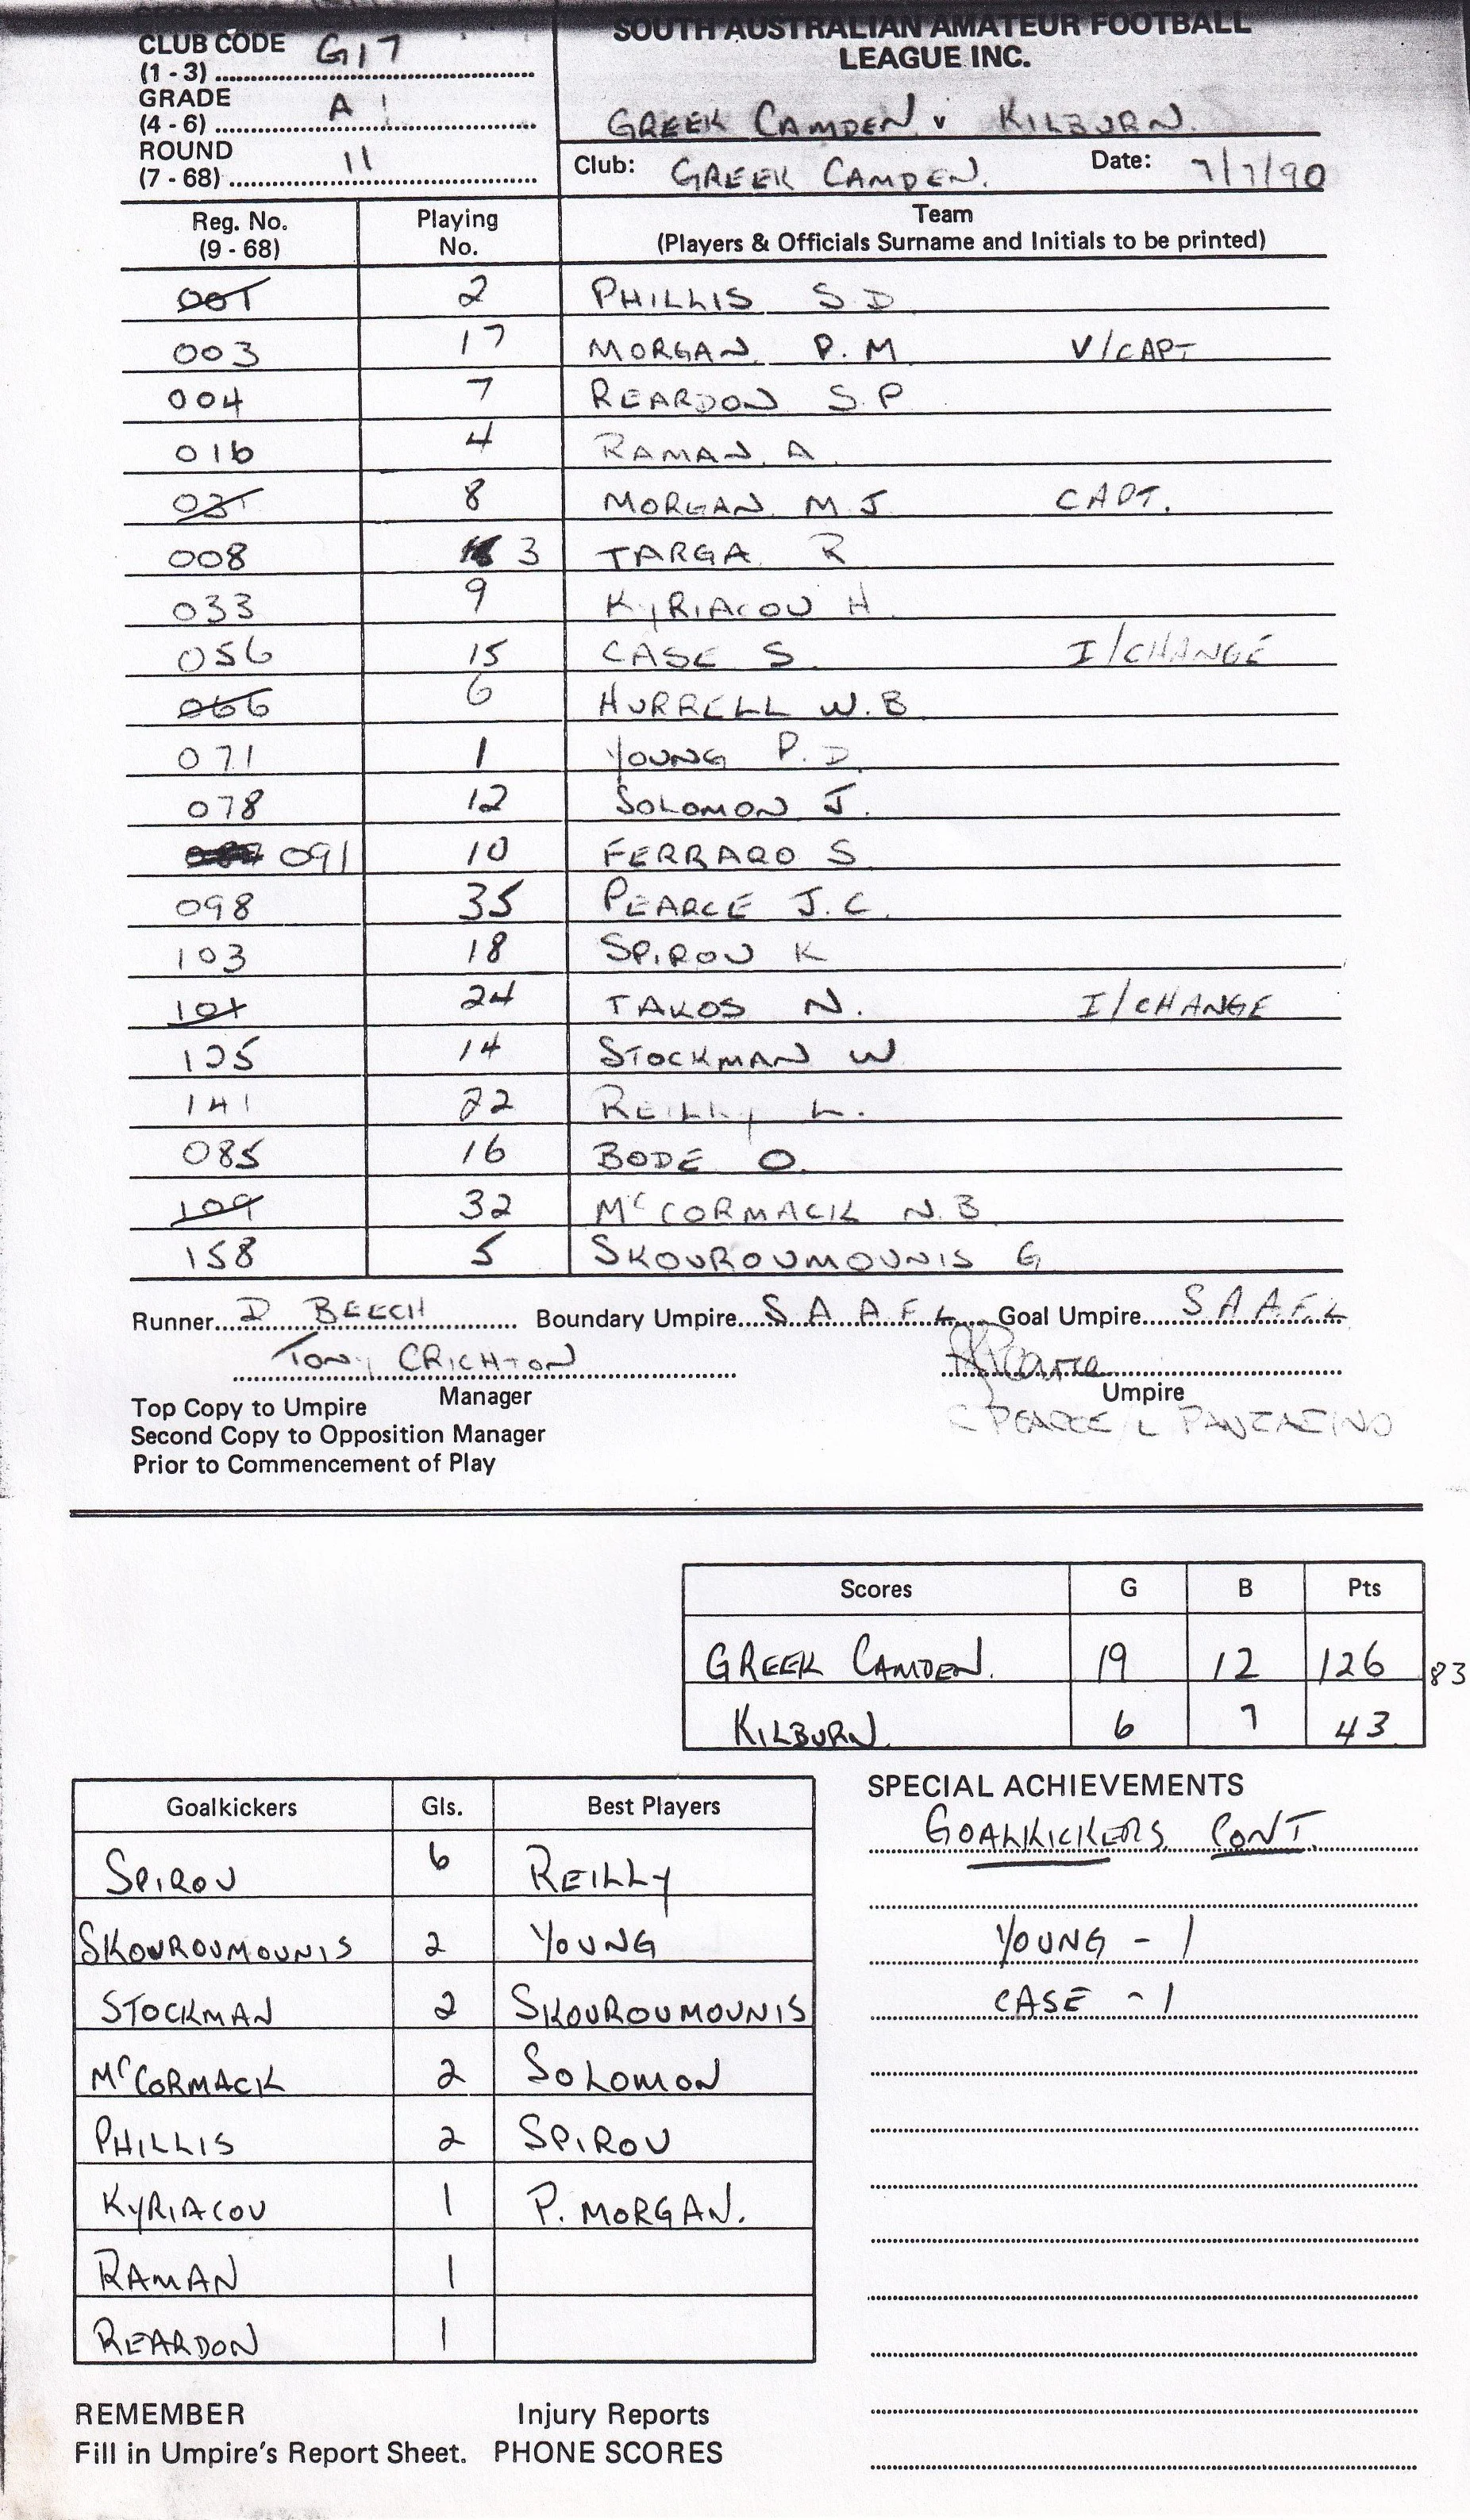 CLUB CODE G17
(1 - 3)
SOUTH AUSTRALIAN AMATEUR FOOTBALL
LEAGUE INC.
GRADE A1
(4 - 6)
GREEK CAMDEN v KILBURN
ROUND 11
(7 - 68)
Club: GREEK CAMDEN. Date: 7/7/90
Reg. No. Playing Team
(9 - 68) No. (Players & Officials Surname and Initials to be printed)
001 2 PHILLIS S D
003 17 MORGAN P. M V/CAPT
004 7 REARDON S P
016 4 RAMAN A.
031 8 MORGAN M J CAPT.
008 3 TARGA R
033 9 KYRIACOU H
056 15 CASE S. I/CHANGE
066 6 HURRELL W. B
071 1 YOUNG P. D.
078 12 SOLOMON J.
091 10 FERRARO S
098 35 PEARCE J. C.
103 18 SPIROU K
101 24 TAKOS N. I/CHANGE
125 14 STOCKMAN W
141 22 REILLY L.
085 16 BODE O.
109 32 McCORMACK N. B
158 5 SKOUROUMOUNIS G
Runner D BEECH Boundary Umpire S A A F L Goal Umpire S A A.F.L
TONY CRICHTON
Manager Umpire
Top Copy to Umpire
C PEARCE / L PANZARINO
Second Copy to Opposition Manager
Prior to Commencement of Play
Scores G B Pts
GREEK CAMDEN. 19 12 126 83
KILBURN 6 7 43
Goalkickers Gls. Best Players
SPIROU 6 REILLY
SKOUROUMOUNIS 2 YOUNG
STOCKMAN 2 SKOUROUMOUNIS
McCORMACK 2 SOLOMON
PHILLIS 2 SPIROU
KYRIACOU 1 P. MORGAN.
RAMAN 1
REARDON 1
SPECIAL ACHIEVEMENTS
GOALKICKERS CONT.
YOUNG - 1
CASE - 1
REMEMBER Injury Reports
Fill in Umpire's Report Sheet. PHONE SCORES